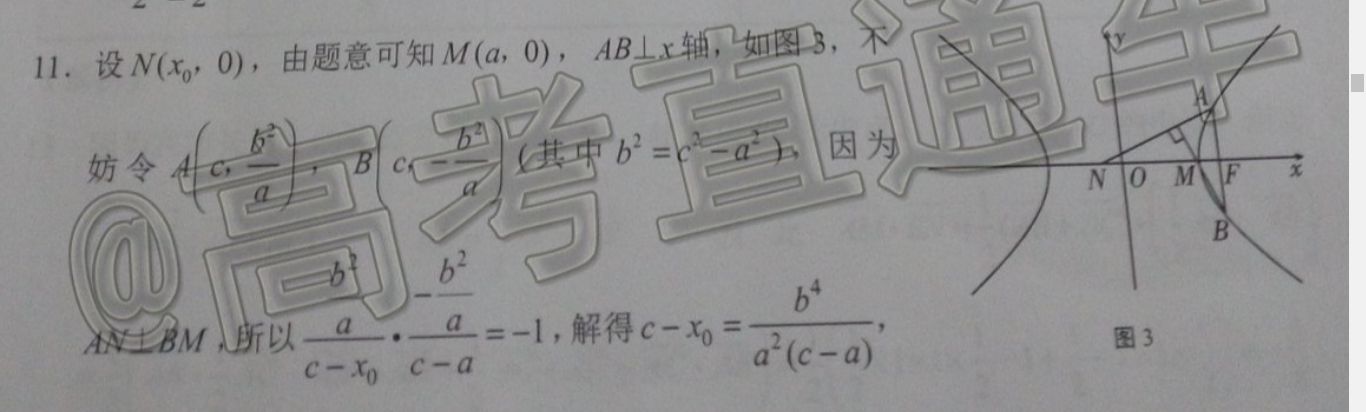 11. 设 N(x₀, 0), 由题意可知 M(a, 0), AB⊥x 轴, 如图 3, 不
妨令 A(c, b²/a), B(c, -b²/a) (其中 b² = c² - a²), 因为
AN⊥BM, 所以 (b²/a)/(c - x₀) · (-b²/a)/(c - a) = -1, 解得 c - x₀ = b⁴/(a²(c - a)),
y
A
N O M F x
B
图 3
@高考直通车